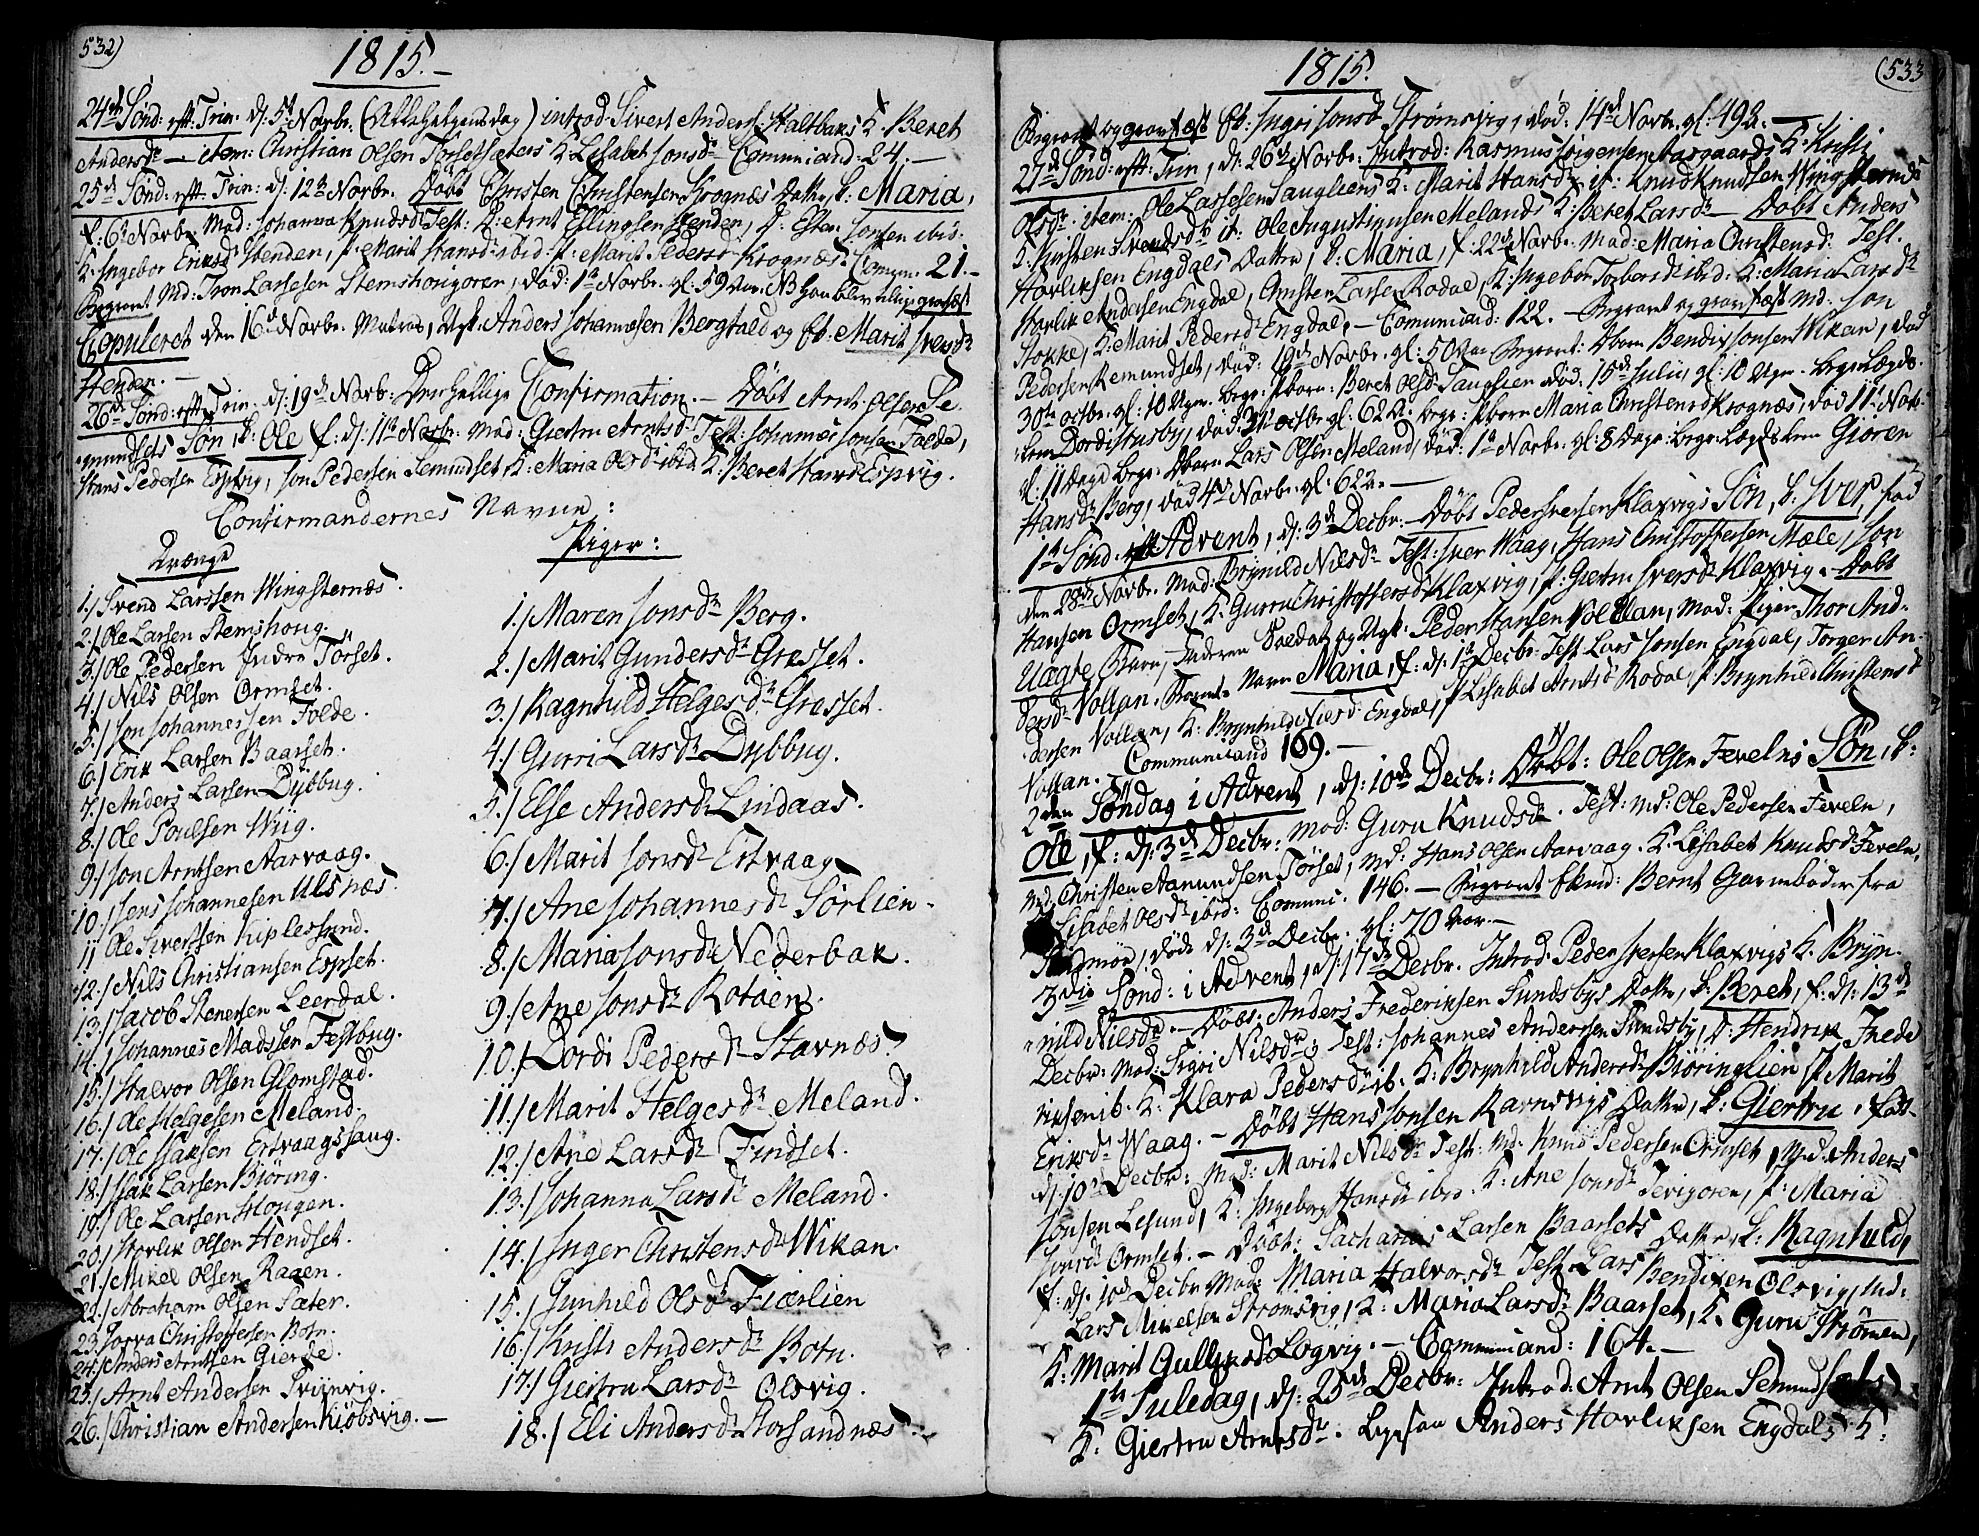 532)
1815.
24de Sønd: eft: Trin. d: 5t Novbr. (Alle Helgens dag) introd Sivert Anders: Haltbaks K: Beret
Andersdr — item: Christian Olsen Torsetsæters K: Lisabet Jonsdr — Comuniand: 24. —
25de Sønd: eft: Trin: d: 12te Novbr. Døbt Christen Christensen Krognæs Datter, k: Maria,
f: 6te Novbr. Mod: Johanna Knudsdr Test: D: Arnt Ellingsen Henden, D: Esten Jonsen ibid:
K: Ingebor Eriksdr Henden, P: Marit Hansdr ibid: P: Marit Pedersdr Krognæs. Comm: 21. —
Begravt Md: Tron Larssen Stemshougøren, død: 1te Novbr. gl: 59
Copuleret den 16de Novbr. Matros, Ugk: Anders Johannesen Bergfald og Pb: Marit Iversdr
Henden. —
26de Sønd: eft: Trin. d: 19de Novb: Den hellige Confirmation. — Døbt Arnt Olsens Se-
mundsets Søn, k: Ole f: d: 11te Novbr: Mod: Giertru Arntsdr Test: Johannes Jonsen Folde,
Hans Pedersen Espvig, Jon Pedersen Semundset, K: Maria Olsdr ibid. K: Beret Hansdr Espvig.
Confirmandernes Navne:
Drænge
1./ Svend Larssen Wingsternæs.
2./ Ole Larsen Stemshoug.
3./ Ole Pedersen Indre Törset.
4./ Nils Olsen Ormset.
5./ Jon Johannessen Folde.
6./ Erik Larsen Baarset.
7./ Anders Larsen Dybbug.
8./ Ole Poulsen Wiig.
9./ Jon Arntsen Aarvaag.
10./ Jens Johannesen Ulsnæs.
11 Ole Sivertsen Kiplesund.
12./ Nils Christiansen Espset.
13./ Jacob Stenersen Leerdal.
14./ Johannes Madssen Festbug.
15./ Halvor Olsen Glomstad.
16./ Ole Helgesen Meland.
17./ Ole Isaksen Ertvaagshaug.
18./ Isak Larsen Biöring.
19./ Ole Larsen Hougen.
20./ Hovlik Olsen Hendset.
21./ Mikel Olsen Raaen.
22./ Abraham Olsen Sæter.
23. Torva Christoffersen Botn.
24./ Anders Arntsen Gierde.
25./ Arnt Andersen Sviinvig.
26./ Christian Andersen Kiöbsvig. —
Piger:
1./ Maren Jonsdr Berg.
2./ Marit Gundersdr Gresset.
3./ Ragnhild Helgesdr Gresset.
4./ Gurri Larsdr Dybbug.
5./ Else Andersdr Lindaas.
6./ Marit Jonsdr Ertvaag
7./ Ane Johannesdr Sörlien.
8./ Maria Jonsdr Nederbak.
9./ Ane Jonsdr Rotøen.
10./ Dordi Pedersdr Stavnæs.
11./ Marit Helgesdr Meland.
12./ Ane Larsdr Findset.
13./ Johanna Larsdr Meland.
14./ Inger Christensdr Wikan.
15./ Gunhild Olsdr Fiærlien
16./ Kristi Andersdr Botn.
17./ Giertru Larsdr Olsvig.
18./ Eli Andersdr Storsandnæs.
(533
1815.
Begravt og gravfæst Pb: Ingri Jonsdr Strömsvig, død. 14de Novbr. gl: 49 —
27de Sønd: eft: Trin, d: 26de Novbr: Introd: Rasmus Jörgensen Aasgaards K: Kristi
Olsdr. item: Ole Larssen Saugliens K: Marit Hansdr, it: Knud Knudsen Wingsternæs
K: Kirsten Svendsdr it: Ole Augustinusen Melands K: Beret Larsdr — Døbt Anders
Hovliksen Engdals Datter, k: Maria, f: 22de Novbr. Mod: Maria Christensdr Test.
Hovlik Andersen Engdal, Christen Larsen Rodal, K: Ingebor Torborsdr ibid: K: Maria Larsdr
Stokke, K: Marit Pedersdr Engdal, — Comuniand: 122. — Begravt og gravfæst Md: Jon
Pedersen Remundset, død: 19de Novbr. gl: 50 Begravt: Dbarn Bendix Jonsen Wikan, død
30te octbr. gl: 10 Ugr. Begr: Pbarn: Beret Olsdr Sauglien død. 15de Julii, gl: 10 Ugr. Begr: Lægds-
lem Dordi Husby, død 31te octbr gl: 62 Begr: Pbarn Maria Christensdr Krognæs, død 11te Novb:
gl: 11 dage Begr: Dbarn Lars Olsen Meland, død: 1te Novbr. gl: 8 Dage: Begr: Lægdslem Gioren
Hansdr Berg, død 4de Novbr. gl: 62 —
1te Sønd: eft: Advent, d: 3de Decbr. — Døbt Peder Iversen Klaxvigs Søn, k: Iver, fød
den 28de Novbr. Mod: Brynild Nilsdr Test: Iver Waag, Hans Christoffersen Mæle, Jon
Hansen Ormset, K: Gurru Christoffersdr Klaxvig, P: Giertru Iversdr Klaxvig. — Døbt
Uægte Barn, Faderen Soldat og Ugk: Peder Hansen Vollan, Mod: Pigen Thor And-
dersdr Vollan. Barnets Navn Maria, f: d: 1te Decbr: Test Lars Jonsen Engdal, Torger An-
dersen Vollan, K: Brynhild Nilsdr Engdal, P: Lisabet Arntsdr Rodal, P: Brynhild Christensdr
Vollan. Communiand 109. —
2den Søndag i Advent, d: 10de Decbr: Døbt: Ole Olsen Fevelns Søn, k:
Ole, f: d: 3de Decbr: Mod: Guru Knudsdr. Test: Md: Ole Pedersen Feveln,
Md: Christen Aamundsen Törset, Md: Hans Olsen Aarvaag. K: Lisabet Knudsdr Feveln,
Lisabet Olsdr ibid: Comuni: 146. — Begravt Ekmd: Bernt Garnboder fra
døde d: 3de Decbr. gl: 70 Aar. —
3die Sønd: i Advent, d: 17de Decbr. Introd: Peder Iversen Klaxvigs K: Bryn-
nild Nilsdr. — Døbt: Anders Frederiksen Sundsbys Datter, k: Beret, f: d: 13de
Decbr: Mod: Sigri Nilsdr; Test: Johannes Andersen Sundsby, D: Hendrik Frede
riksen ib. K: Klara Pedersdr ib. K: Brynhild Andersdr Biöringlien, P: Marit
Eriksdr Waag. — Døbt Hans Jonsen Ravnsvigs Datter, k: Giertru, född
d: 10de Decbr: Mod: Marit Nilsdr Test: Md: Knud Pedersen Ormset, Md. Anders
Jonsen Lesund, K: Ingeborg Hansdr ibid. K: Ane Jonsdr Tevigoren, P: Maria
Iversdr Ormset. — Døbt: Sacharias Larsen Baarsets Datter, k: Ragnhild,
f: d: 10de Decbr Mod: Maria Halvorsdr Test: Lars Bendixen Olsvig, Md:
Lars Mikelsen Strömsvig, K: Maria Larsdr Baarset, K: Guru Strömen,
K: Marit Gullixsdr Logvig. — Communiand: 164. —
1te Juledag, d: 25de Decbr: Introd: Arnt Olsen Semundsets
K: Giertru Arntsdr. Ligesaa Anders Hovliksen Engdals K: